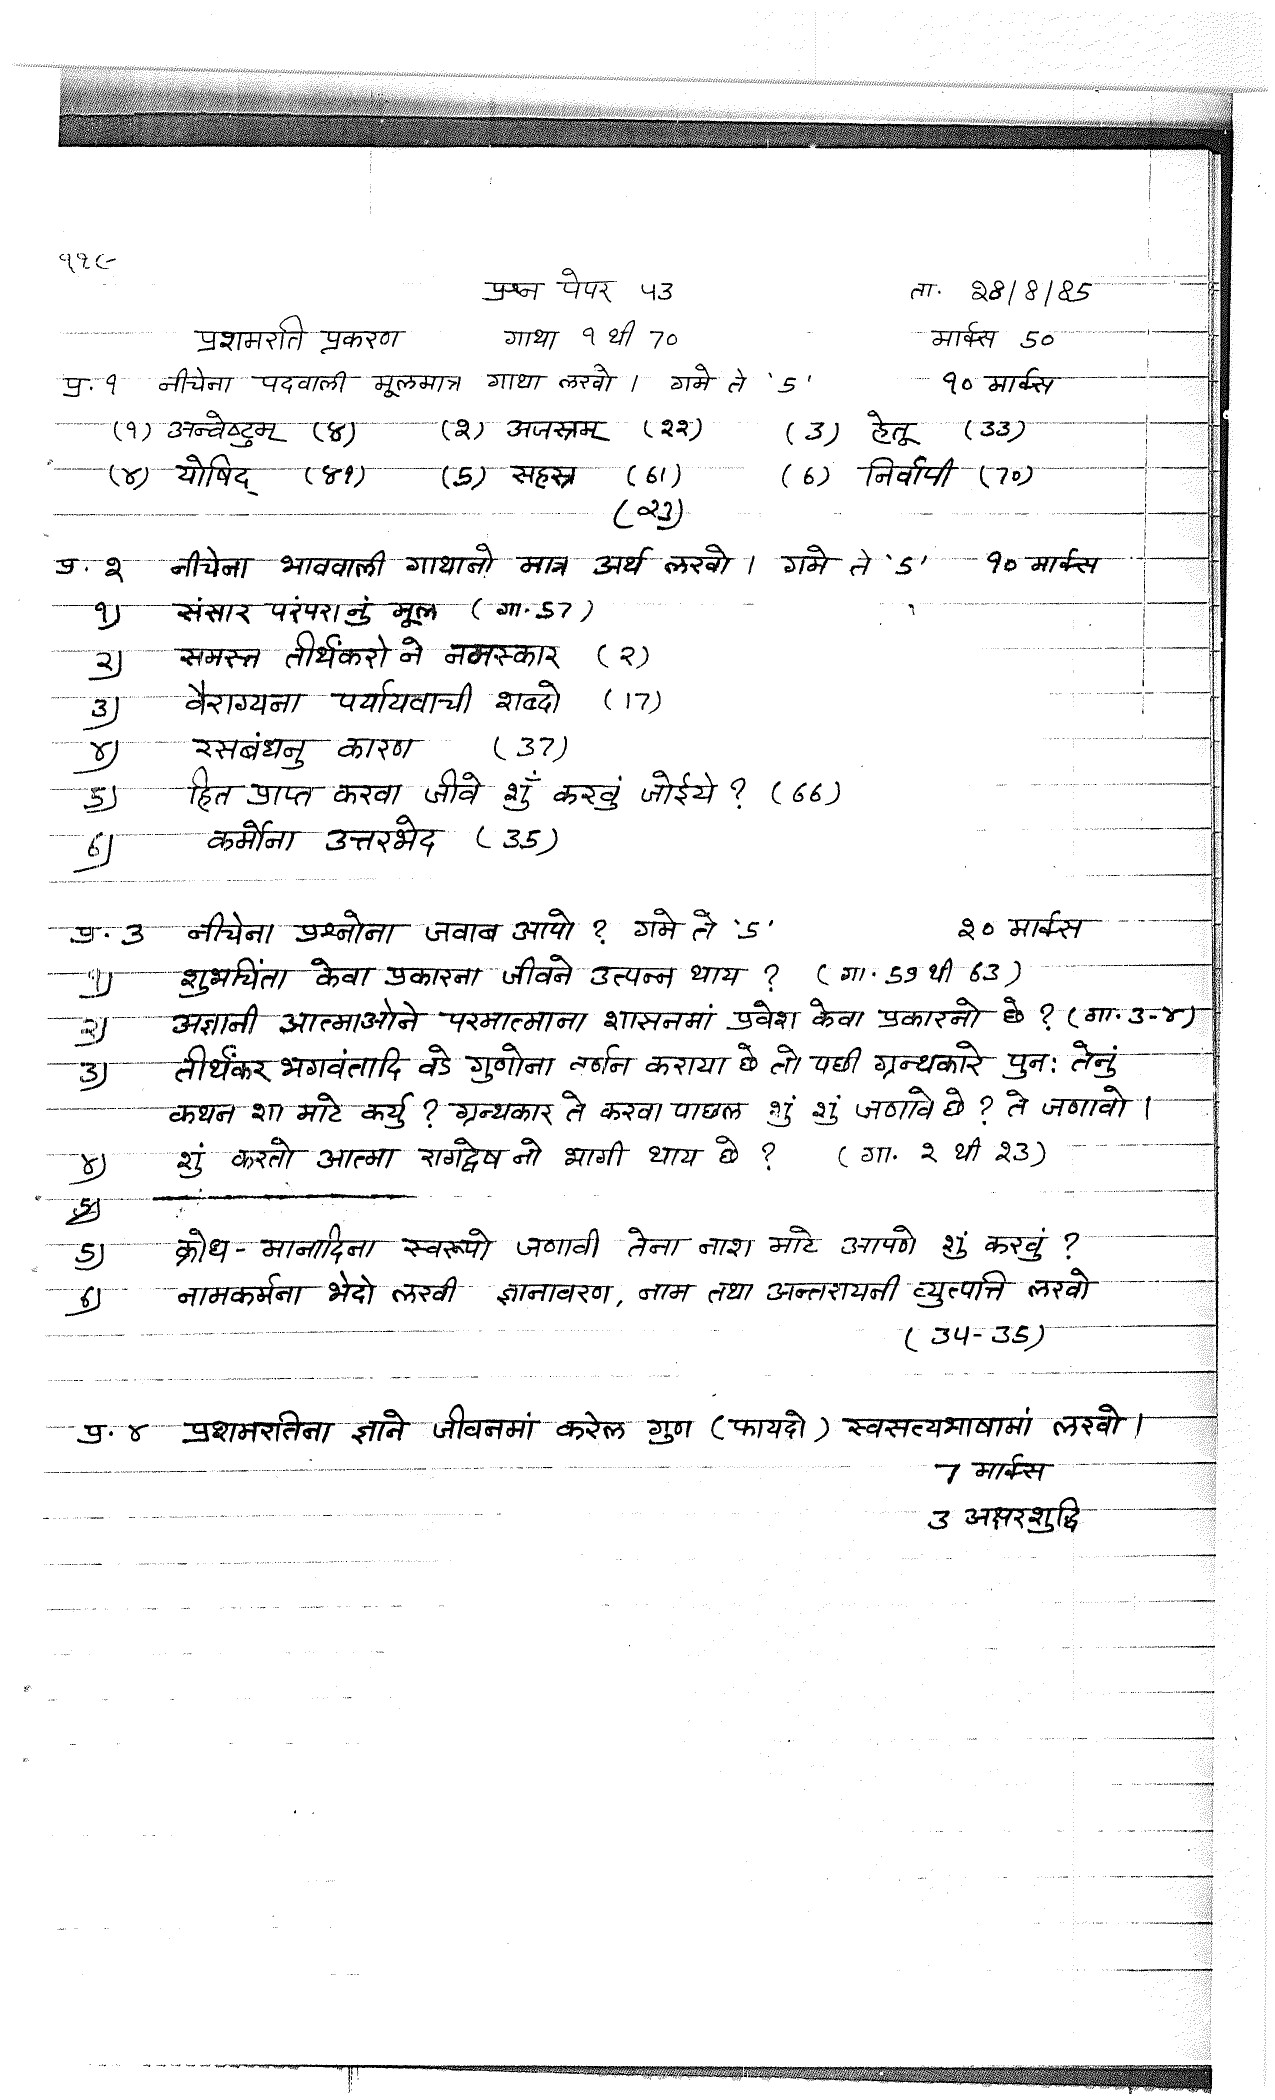 ११८
प्रश्न पेपर 43 ता. २8/8/85
प्रशमरति प्रकरण गाथा १ थी 70 मार्क्स 50
प्र. १ नीचेना पदवाली मूलमात्र गाथा लखो । गमे ते '5' १० मार्क्स
(१) अन्वेष्टुम् (४) (२) अजस्रम् (२२) (3) हेतू (33)
(४) योषिद् (४१) (5) सहस्र (61) (6) निर्वापी (70)
(२3)
प्र. २ नीचेना भाववाली गाथानो मात्र अर्थ लखो । गमे ते '5' १० मार्क्स
१) संसार परंपरानुं मूल (गा. 57)
२) समस्त तीर्थंकरो ने नमस्कार (२)
3) वैराग्यना पर्यायवाची शब्दो (17)
४) रसबंधनु कारण (37)
5) हित प्राप्त करवा जीवे शुँ करवुं जोईये ? (66)
6) कर्मोना उत्तरभेद (35)
प्र. 3 नीचेना प्रश्नोना जवाब आपो ? गमे ते '5' २० मार्क्स
१) शुभचिंता केवा प्रकारना जीवने उत्पन्न थाय ? (गा. 59 थी 63)
२) अज्ञानी आत्माओने परमात्माना शासनमां प्रवेश केवा प्रकारनो छे ? (गा. 3-४)
3) तीर्थंकर भगवंतादि वडे गुणोना वर्णन कराया छे तो पछी ग्रन्थकारे पुनः तेनुं
कथन शा माटे कर्यु ? ग्रन्थकार ते करवा पाछल शुं शुं जणावे छे ? ते जणावो ।
४) शुं करतो आत्मा रागद्वेष नो भागी थाय छे ? (गा. २ थी २3)
5)
5) क्रोध - मानादिना स्वरूपो जणावी तेना नाश माटे आपणे शुं करवुं ?
6) नामकर्मना भेदो लखी ज्ञानावरण, नाम तथा अन्तरायनी व्युत्पत्ति लखो
(34-35)
प्र. ४ प्रशमरतिना ज्ञाने जीवनमां करेल गुण (फायदो) स्वसत्यभाषामां लखो ।
7 मार्क्स
3 अक्षरशुद्धि